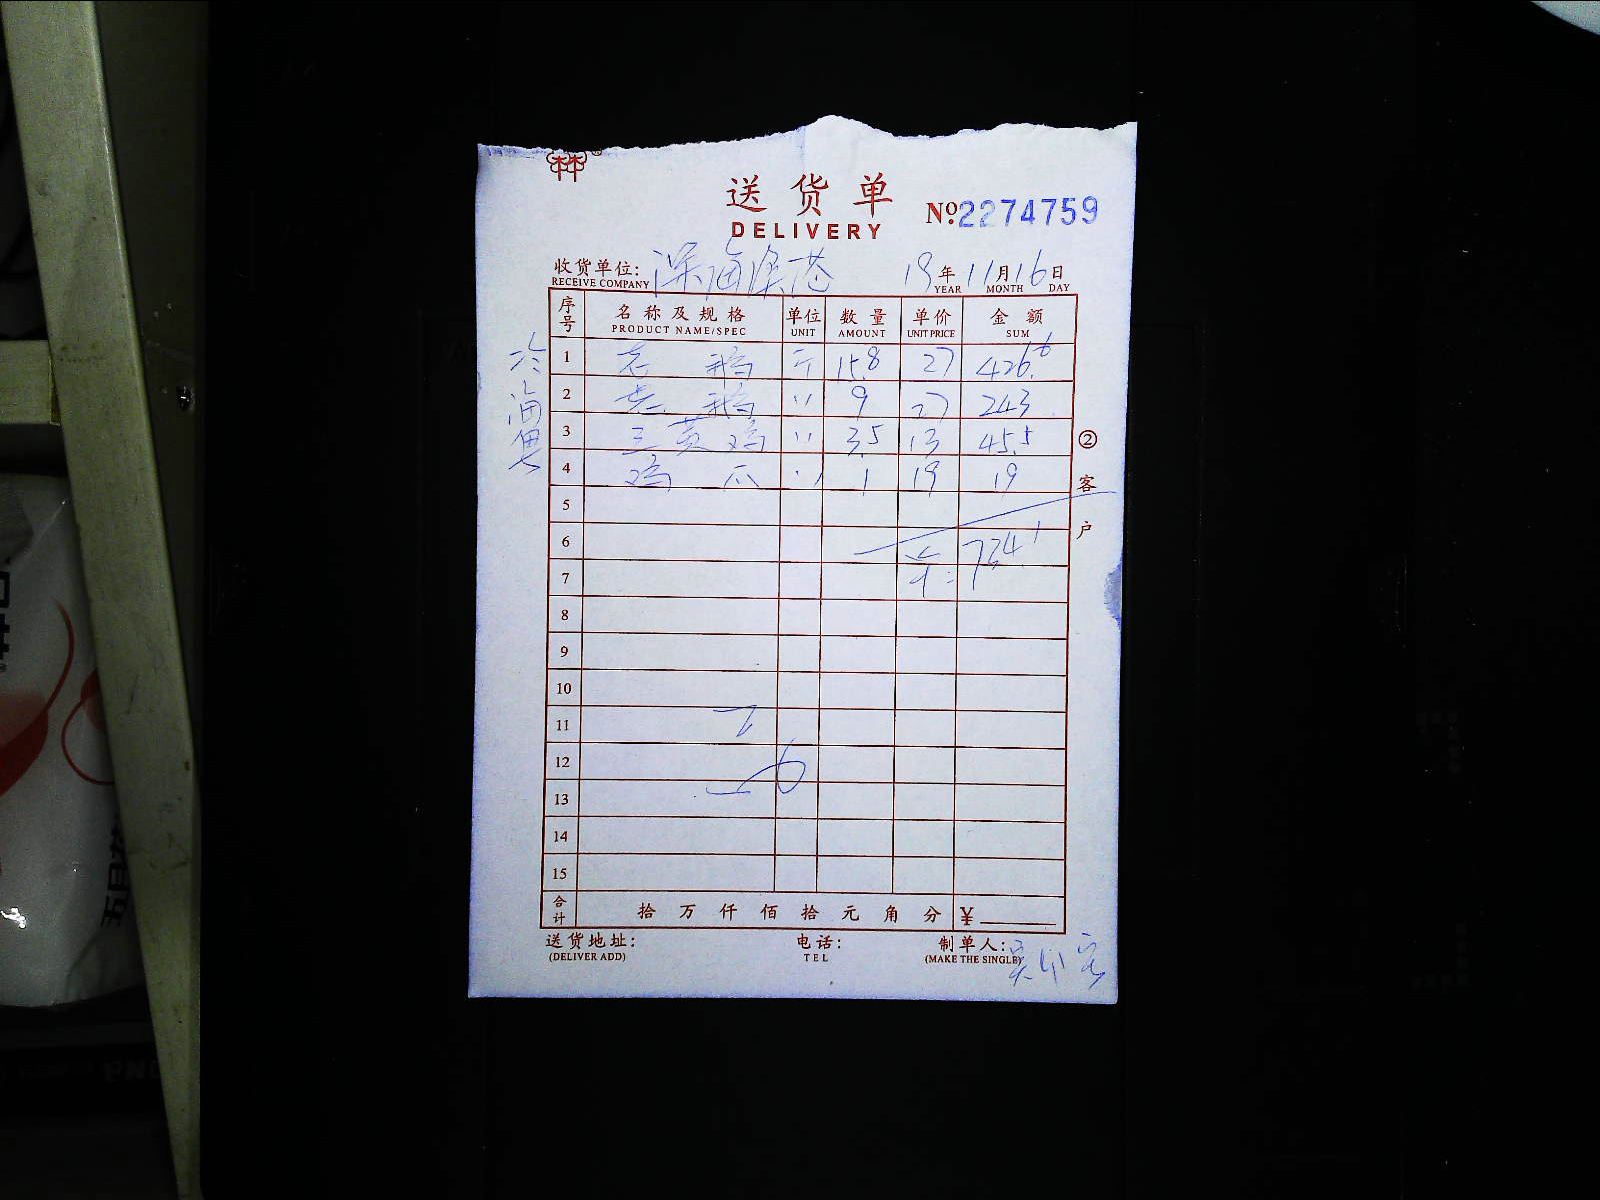 送货单
№2274759
DELIVERY
收货单位: 深海渔港 19年 11月 16日
RECEIVE COMPANY YEAR MONTH DAY
序号 名称及规格 单位 数量 单价 金额
PRODUCT NAME/SPEC UNIT AMOUNT UNIT PRICE SUM
1 老鹅 斤 15.8 27 426.6
2 老鹅 〃 9 27 243
3 三黄鸡 〃 3.5 13 45.5
4 鸡爪 〃 1 19 19
② 客户
5
6 734.1
7
8
9
10
11
12
13
14
15
合计 拾 万 仟 佰 拾 元 角 分 ¥
送货地址: 电话: 制单人:
(DELIVER ADD) TEL (MAKE THE SINGLE)